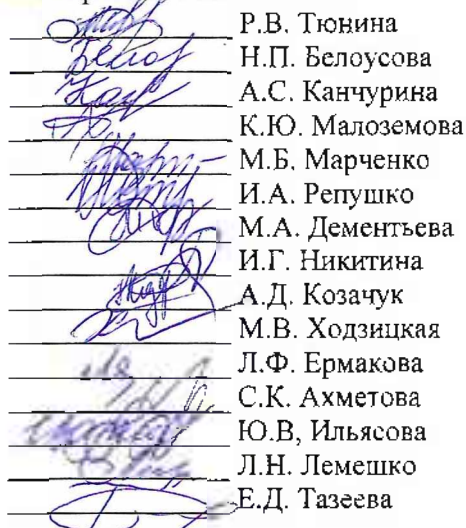 Р.В. Тюнина
Н.П. Белоусова
А.С. Канчурина
К.Ю. Малоземова
М.Б. Марченко
И.А. Репушко
М.А. Дементьева
И.Г. Никитина
А.Д. Козачук
М.В. Ходзицкая
Л.Ф. Ермакова
С.К. Ахметова
Ю.В, Ильясова
Л.Н. Лемешко
Е.Д. Тазеева